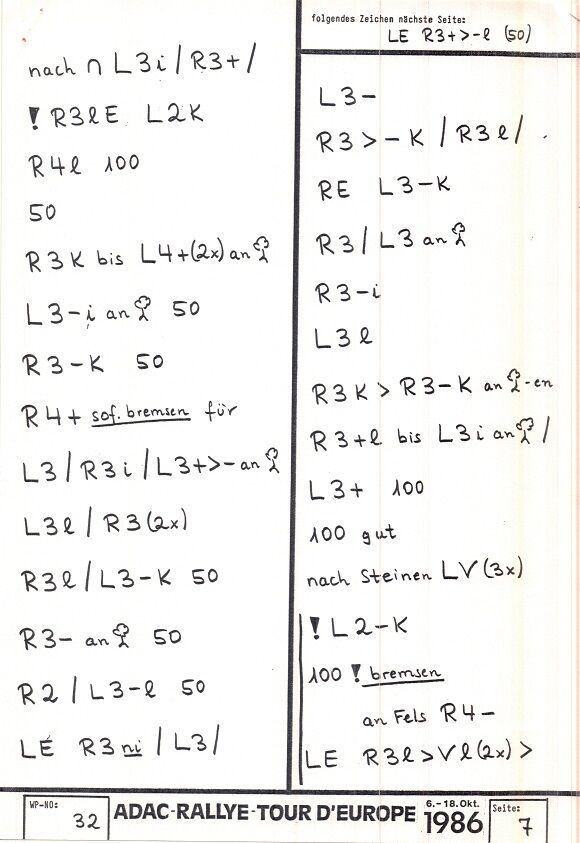 nach ∩ L3i / R3+ /
! R3lE L2K
R4l 100
50
R3K bis L4+(2x) an
L3-i an 50
R3-K 50
R4+ sof. bremsen für
L3 / R3i / L3+>- an
L3l / R3(2x)
R3l / L3-K 50
R3- an 50
R2 / L3-l 50
LE R3 ni / L3 /
folgendes Zeichen nächste Seite:
LE R3+>-l (50)
L3-
R3>-K / R3l /
RE L3-K
R3 / L3 an
R3-i
L3l
R3K > R3-K an -en
R3+l bis L3i an /
L3+ 100
100 gut
nach Steinen LV(3x)
! L2-K
100 ! bremsen
an Fels R4-
LE R3l>Vl(2x)>
WP-NO: 32
ADAC-RALLYE-TOUR D'EUROPE
6.-18. Okt.
1986
Seite: 7